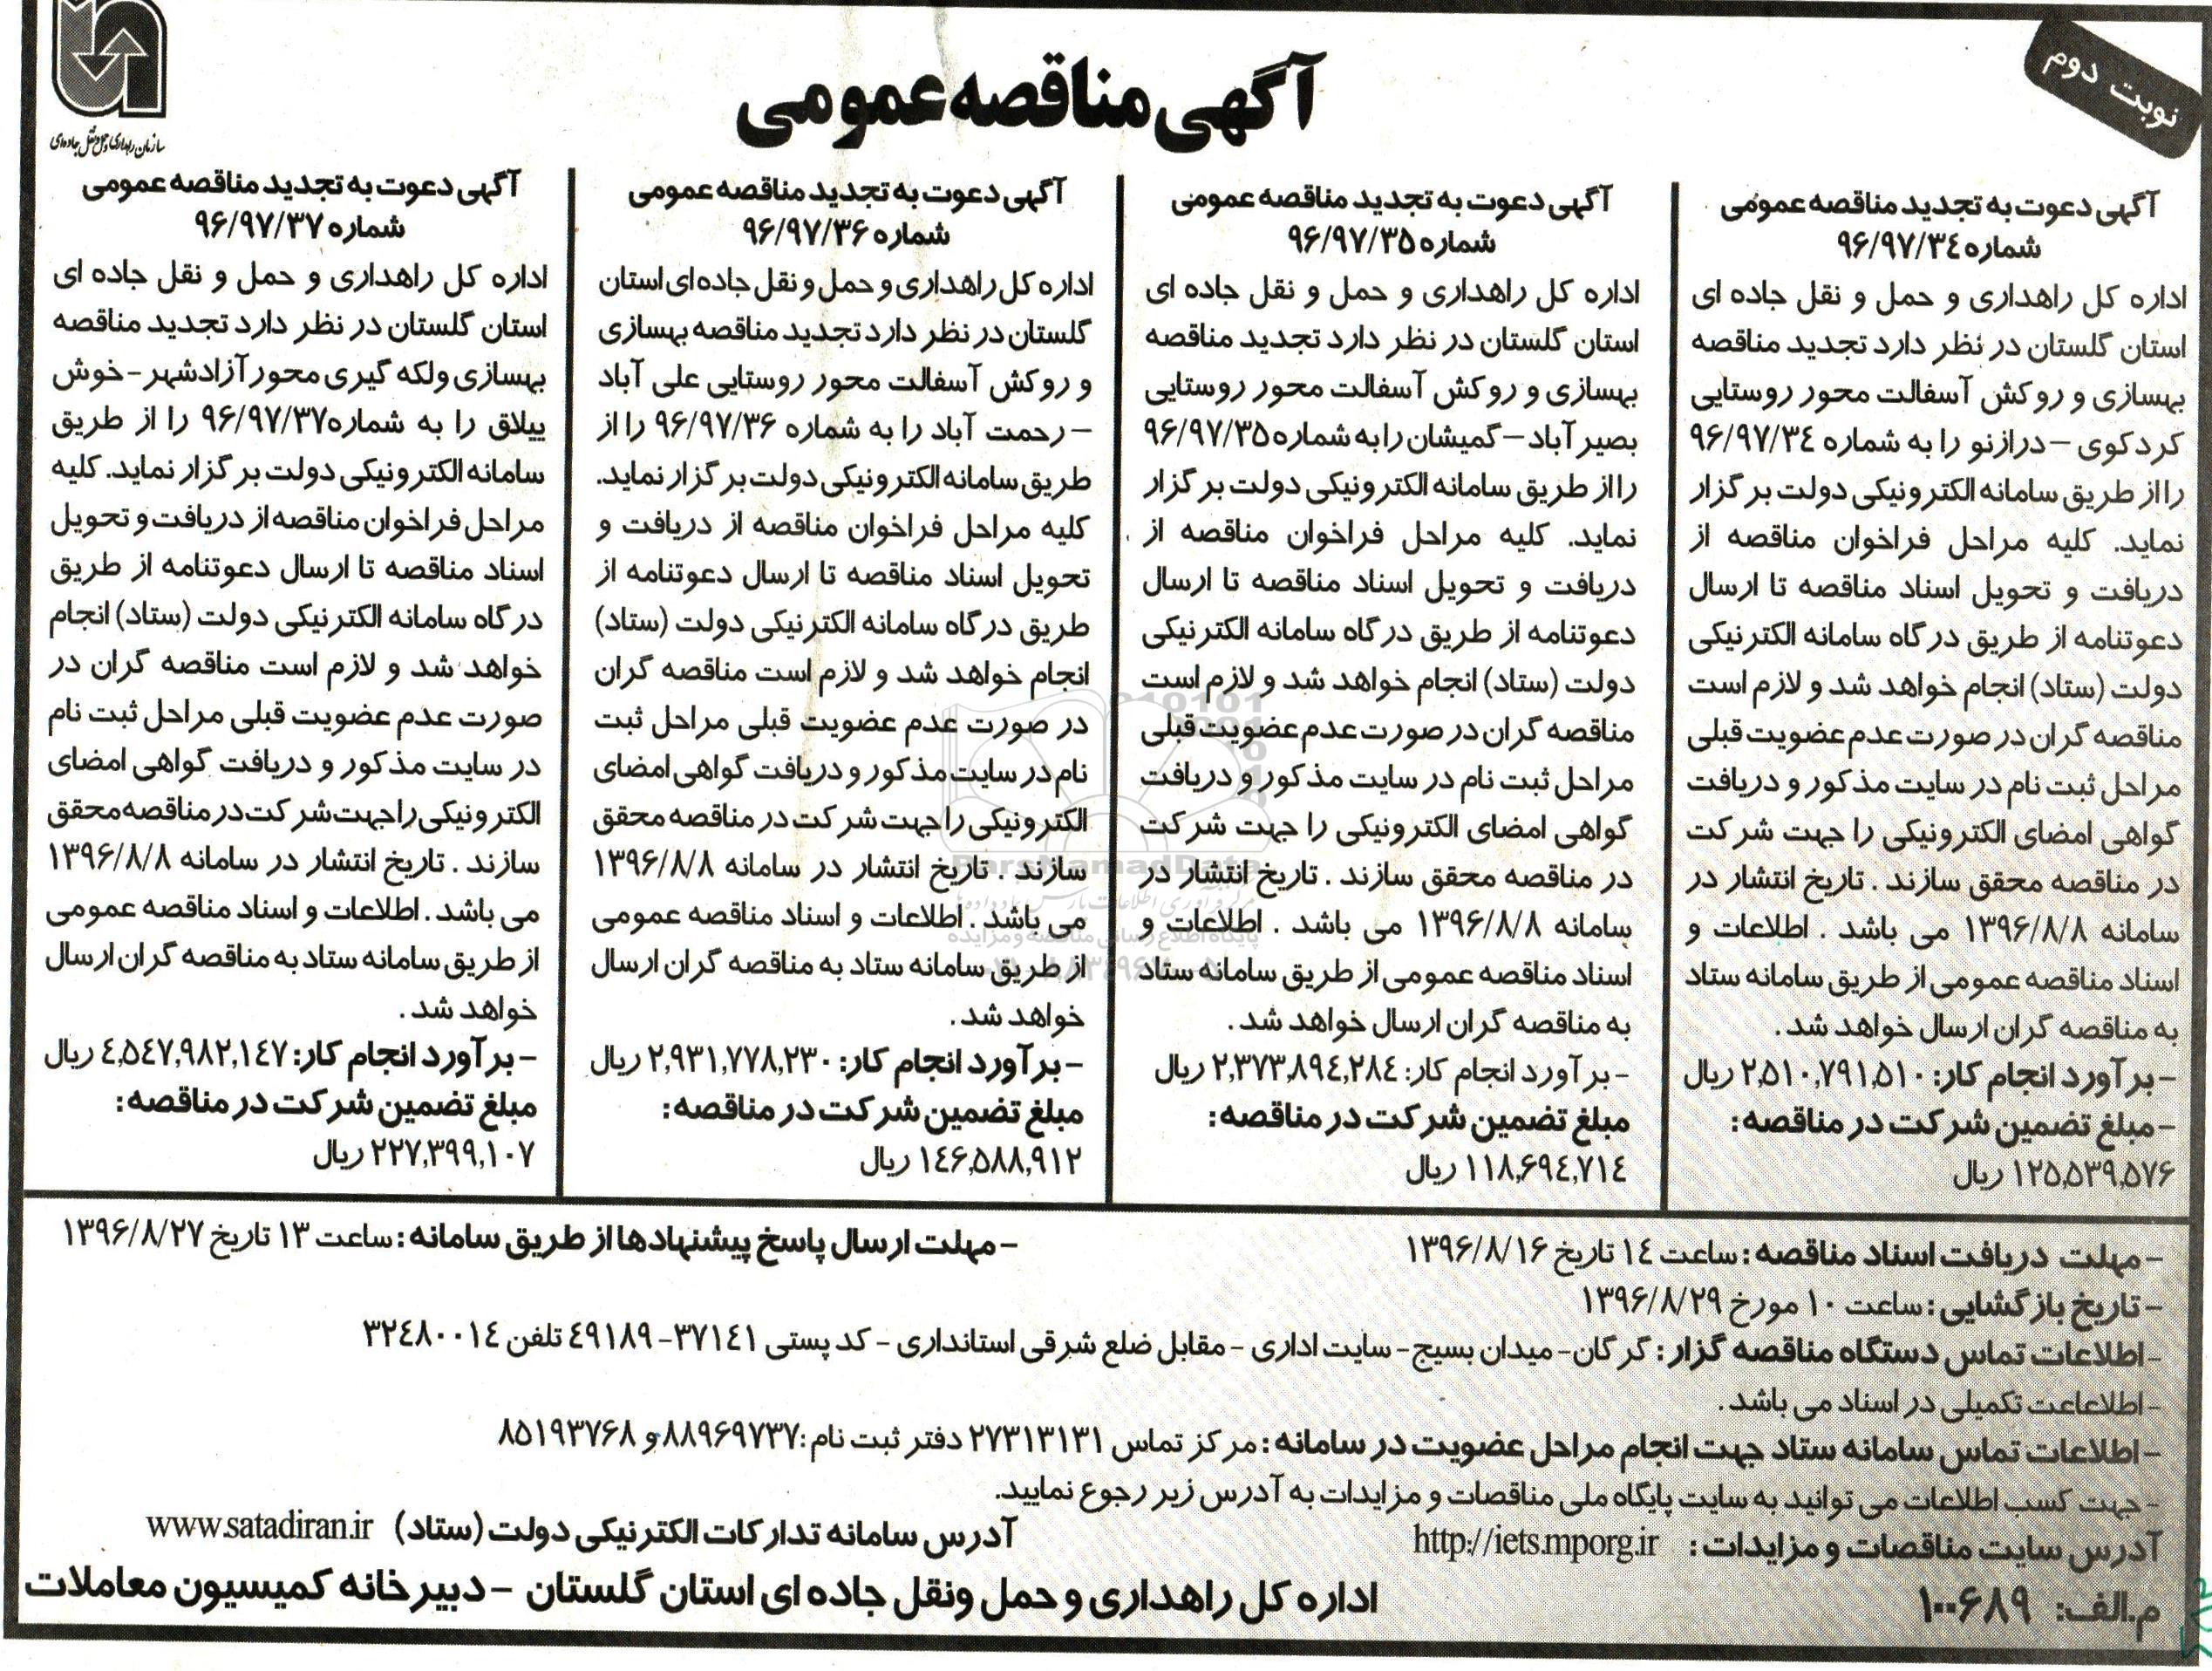 نوبت دوم
آگهی مناقصه عمومی
سازمان راهداری و حمل و نقل جاده‌ای
آگهی دعوت به تجدید مناقصه عمومی
شماره ۹۶/۹۷/۳۴
اداره کل راهداری و حمل و نقل جاده ای
استان گلستان در نظر دارد تجدید مناقصه
بهسازی و روکش آسفالت محور روستایی
کردکوی – درازنو را به شماره ۹۶/۹۷/۳۴
را از طریق سامانه الکترونیکی دولت برگزار
نماید. کلیه مراحل فراخوان مناقصه از
دریافت و تحویل اسناد مناقصه تا ارسال
دعوتنامه از طریق درگاه سامانه الکترنیکی
دولت (ستاد) انجام خواهد شد و لازم است
مناقصه گران در صورت عدم عضویت قبلی
مراحل ثبت نام در سایت مذکور و دریافت
گواهی امضای الکترونیکی را جهت شرکت
در مناقصه محقق سازند . تاریخ انتشار در
سامانه ۱۳۹۶/۸/۸ می باشد . اطلاعات و
اسناد مناقصه عمومی از طریق سامانه ستاد
به مناقصه گران ارسال خواهد شد .
- برآورد انجام کار: ۲,۵۱۰,۷۹۱,۵۱۰ ریال
- مبلغ تضمین شرکت در مناقصه:
۱۲۵,۵۳۹,۵۷۶ ریال
آگهی دعوت به تجدید مناقصه عمومی
شماره ۹۶/۹۷/۳۵
اداره کل راهداری و حمل و نقل جاده ای
استان گلستان در نظر دارد تجدید مناقصه
بهسازی و روکش آسفالت محور روستایی
بصیرآباد – گمیشان را به شماره ۹۶/۹۷/۳۵
را از طریق سامانه الکترونیکی دولت برگزار
نماید. کلیه مراحل فراخوان مناقصه از
دریافت و تحویل اسناد مناقصه تا ارسال
دعوتنامه از طریق درگاه سامانه الکترنیکی
دولت (ستاد) انجام خواهد شد و لازم است
مناقصه گران در صورت عدم عضویت قبلی
مراحل ثبت نام در سایت مذکور و دریافت
گواهی امضای الکترونیکی را جهت شرکت
در مناقصه محقق سازند . تاریخ انتشار در
سامانه ۱۳۹۶/۸/۸ می باشد . اطلاعات و
اسناد مناقصه عمومی از طریق سامانه ستاد
به مناقصه گران ارسال خواهد شد .
- برآورد انجام کار: ۲,۳۷۳,۸۹۴,۲۸۴ ریال
مبلغ تضمین شرکت در مناقصه:
۱۱۸,۶۹۴,۷۱۴ ریال
آگهی دعوت به تجدید مناقصه عمومی
شماره ۹۶/۹۷/۳۶
اداره کل راهداری و حمل و نقل جاده ای استان
گلستان در نظر دارد تجدید مناقصه بهسازی
و روکش آسفالت محور روستایی علی آباد
– رحمت آباد را به شماره ۹۶/۹۷/۳۶ را از
طریق سامانه الکترونیکی دولت برگزار نماید.
کلیه مراحل فراخوان مناقصه از دریافت و
تحویل اسناد مناقصه تا ارسال دعوتنامه از
طریق درگاه سامانه الکترنیکی دولت (ستاد)
انجام خواهد شد و لازم است مناقصه گران
در صورت عدم عضویت قبلی مراحل ثبت
نام در سایت مذکور و دریافت گواهی امضای
الکترونیکی را جهت شرکت در مناقصه محقق
سازند . تاریخ انتشار در سامانه ۱۳۹۶/۸/۸
می باشد . اطلاعات و اسناد مناقصه عمومی
از طریق سامانه ستاد به مناقصه گران ارسال
خواهد شد .
- برآورد انجام کار: ۲,۹۳۱,۷۷۸,۲۳۰ ریال
مبلغ تضمین شرکت در مناقصه:
۱۴۶,۵۸۸,۹۱۲ ریال
آگهی دعوت به تجدید مناقصه عمومی
شماره ۹۶/۹۷/۳۷
اداره کل راهداری و حمل و نقل جاده ای
استان گلستان در نظر دارد تجدید مناقصه
بهسازی ولکه گیری محور آزادشهر - خوش
ییلاق را به شماره۹۶/۹۷/۳۷ را از طریق
سامانه الکترونیکی دولت برگزار نماید. کلیه
مراحل فراخوان مناقصه از دریافت و تحویل
اسناد مناقصه تا ارسال دعوتنامه از طریق
درگاه سامانه الکترنیکی دولت (ستاد) انجام
خواهد شد و لازم است مناقصه گران در
صورت عدم عضویت قبلی مراحل ثبت نام
در سایت مذکور و دریافت گواهی امضای
الکترونیکی را جهت شرکت در مناقصه محقق
سازند . تاریخ انتشار در سامانه ۱۳۹۶/۸/۸
می باشد . اطلاعات و اسناد مناقصه عمومی
از طریق سامانه ستاد به مناقصه گران ارسال
خواهد شد .
- برآورد انجام کار: ۴,۵۴۷,۹۸۲,۱۴۷ ریال
مبلغ تضمین شرکت در مناقصه:
۲۲۷,۳۹۹,۱۰۷ ریال
ParsNamadData
پایگاه اطلاع رسانی مناقصه و مزایده
- مهلت دریافت اسناد مناقصه : ساعت ۱۴ تاریخ ۱۳۹۶/۸/۱۶ - مهلت ارسال پاسخ پیشنهادها از طریق سامانه : ساعت ۱۳ تاریخ ۱۳۹۶/۸/۲۷
- تاریخ بازگشایی : ساعت ۱۰ مورخ ۱۳۹۶/۸/۲۹
- اطلاعات تماس دستگاه مناقصه گزار : گرگان- میدان بسیج - سایت اداری - مقابل ضلع شرقی استانداری - کد پستی ۳۷۱۴۱- ۴۹۱۸۹ تلفن ۳۲۴۸۰۰۱۴
- اطلاعاعت تکمیلی در اسناد می باشد .
- اطلاعات تماس سامانه ستاد جهت انجام مراحل عضویت در سامانه : مرکز تماس ۲۷۳۱۳۱۳۱ دفتر ثبت نام :۸۸۹۶۹۷۳۷ و ۸۵۱۹۳۷۶۸
- جهت کسب اطلاعات می توانید به سایت پایگاه ملی مناقصات و مزایدات به آدرس زیر رجوع نمایید.
آدرس سایت مناقصات و مزایدات : http://iets.mporg.ir آدرس سامانه تدارکات الکترنیکی دولت (ستاد) www.satadiran.ir
م.الف: ۱۰۰۶۸۹ اداره کل راهداری و حمل ونقل جاده ای استان گلستان - دبیرخانه کمیسیون معاملات